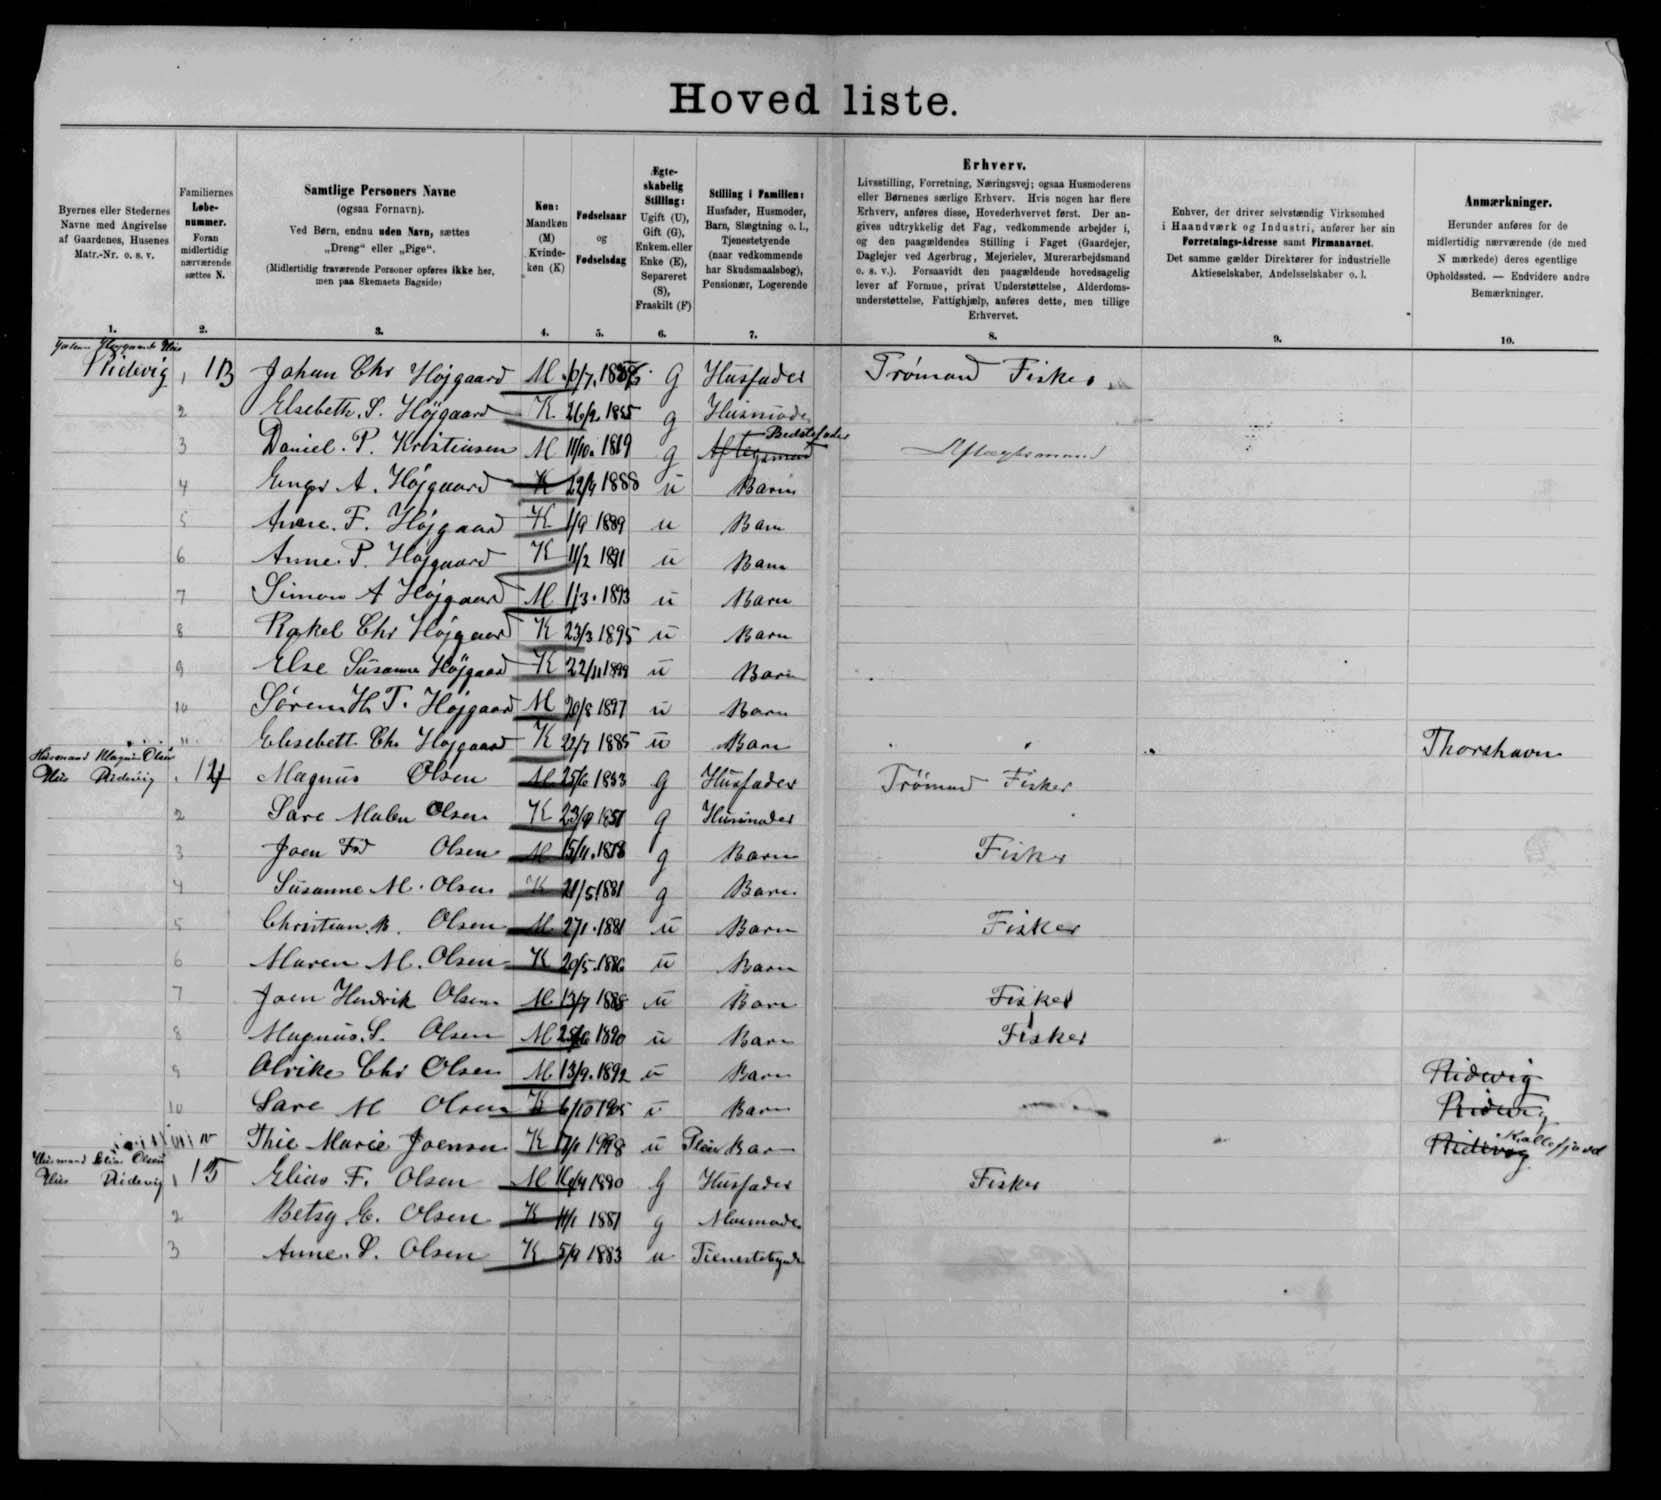 Hoved liste.
Byernes eller Stedernes Navne med Angivelse af Gaardenes, Husenes Matr.-Nr. o. s. v.
Familiernes Løbe-nummer. Foran midlertidig nærværende sættes N.
Samtlige Personers Navne
(ogsaa Fornavn).
Ved Børn, endnu uden Navn, sættes
„Dreng" eller „Pige".
(Midlertidig fraværende Personer opføres ikke her,
men paa Skemaets Bagside)
Køn: Mandkøn (M) Kvinde-køn (K)
Fødselsaar og Fødselsdag
Ægte-skabelig Stilling: Ugift (U), Gift (G), Enkem. eller Enke (E), Separeret (S), Fraskilt (F)
Stilling i Familien: Husfader, Husmoder, Barn, Slægtning o. l., Tjenestetyende (naar vedkommende har Skudsmaalsbog), Pensionær, Logerende
Erhverv.
Livsstilling, Forretning, Næringsvej; ogsaa Husmoderens
eller Børnenes særlige Erhverv. Hvis nogen har flere
Erhverv, anføres disse, Hovederhvervet først. Der an-
gives udtrykkelig det Fag, vedkommende arbejder i,
og den paagældendes Stilling i Faget (Gaardejer,
Daglejer ved Agerbrug, Mejerielev, Murerarbejdsmand
o. s. v.). Forsaavidt den paagældende hovedsagelig
lever af Formue, privat Understøttelse, Alderdoms-
understøttelse, Fattighjælp, anføres dette, men tillige
Erhvervet.
Enhver, der driver selvstændig Virksomhed
i Haandværk og Industri, anfører her sin
Forretnings-Adresse samt Firmanavnet.
Det samme gælder Direktører for industrielle
Aktieselskaber, Andelsselskaber o. l.
Anmærkninger.
Herunder anføres for de
midlertidig nærværende (de med
N mærkede) deres egentlige
Opholdssted. — Endvidere andre
Bemærkninger.
1. 2. 3. 4. 5. 6. 7. 8. 9. 10.
Hus
Ridevig 1 13 Johan Chr Højgaard M g Husfader Trømand Fisker
2 Elsebeth. S. Højgaard K. g Husmoder
3 Daniel. P. Kristensen M 11/10. 1819 g Aftegsmand Bedstefader Aftægtsmand
4 A. Højgaard K 1888 u Barn
5 F. Højgaard K 1/9 1889 u Barn
6 Anne. P. Højgaard K 11/2 1891 u Barn
7 Simon A Højgaard M 1/3. 1893 u Barn
8 Rakel Chr Højgaard K 23/3 1895 u Barn
9 Else Susanne Højgaard K 22/11 u Barn
10 T. Højgaard M 20/8 1897 u Barn
11 Elisebett Chr Højgaard K 22/7 1885 u Barn Thorshavn
Husmand Magnus Olsen
Hus Ridevig 1 14 Magnus Olsen M 25/6 g Husfader Trømand Fisker
2 Sare Malen Olsen K g Husmoder
3 Joen Olsen M 15/11. 1878 g Barn Fisker
4 Susanne M. Olsen K 21/5 1881 g Barn
5 Christian. Olsen M 27/1. 1881 u Barn Fisker
6 Maren M. Olsen K 20/5. 1886 u Barn
7 Joen Hendrik Olsen M 13/7 1888 u Barn Fisker
8 Magnus. S. Olsen M 1890 u Barn Fisker
9 Olrike Chr Olsen M 13/9. 1892 u Barn Ridevig
10 Sare M Olsen K 6/10 1905 u Barn Ridevig
Thie Marie Joensen K u Barn Ridevig
Husmand Elias Olsen
Hus Ridevig 1 15 Elias F. Olsen M g Husfader Fisker
2 Betsy E. Olsen K 11/1 1881 g Husmoder
3 Anne. S. Olsen K 5/9 1883 u Tienestetyende